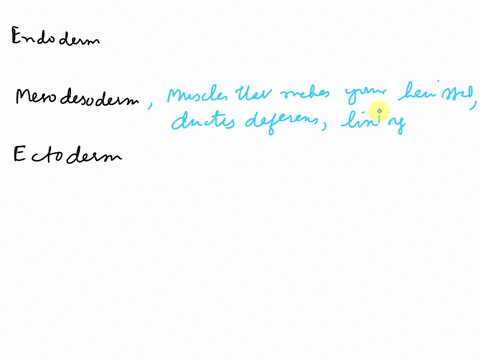 Endoderm
Mesodesoderm, Muscles makes your
ductus deferens, lining
Ectoderm